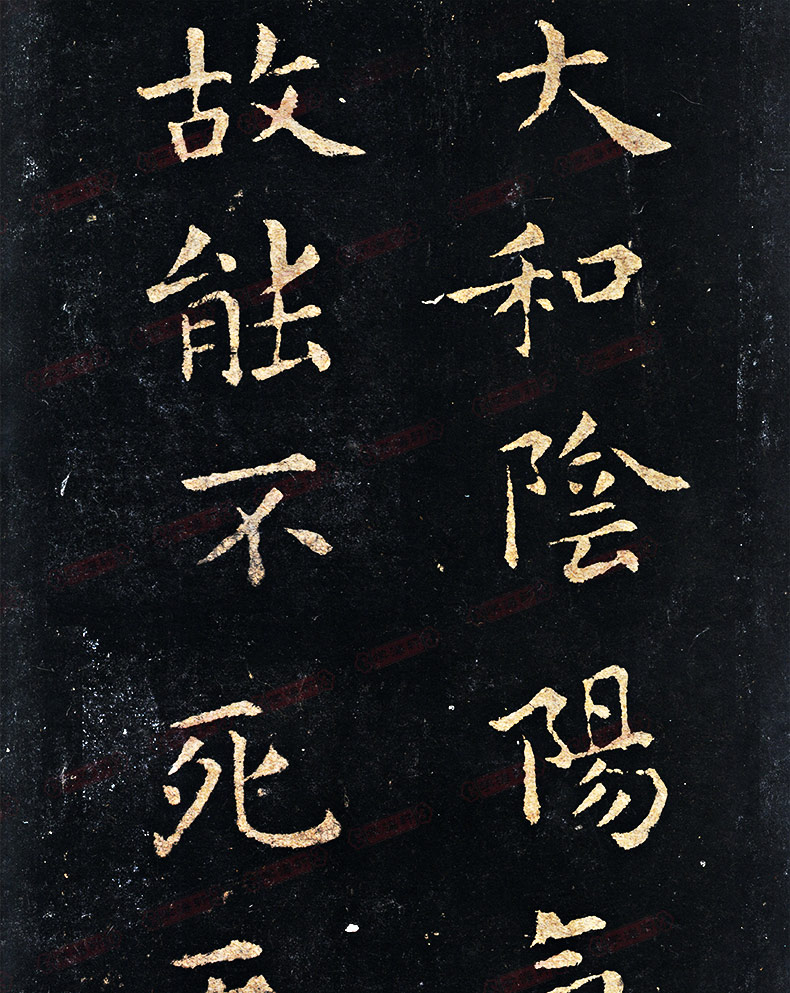 大和陰陽
故能不死